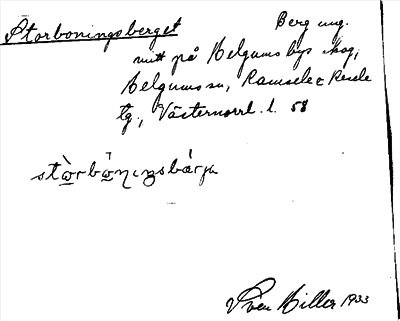 Storboningsberget Berg ung.
mitt på Helgums bys skog,
Helgums sn, Ramsele & Resele
tg., Västernorrl. l. 58
stὼrbὼnıŋsbárja
Sven Hiller 1933